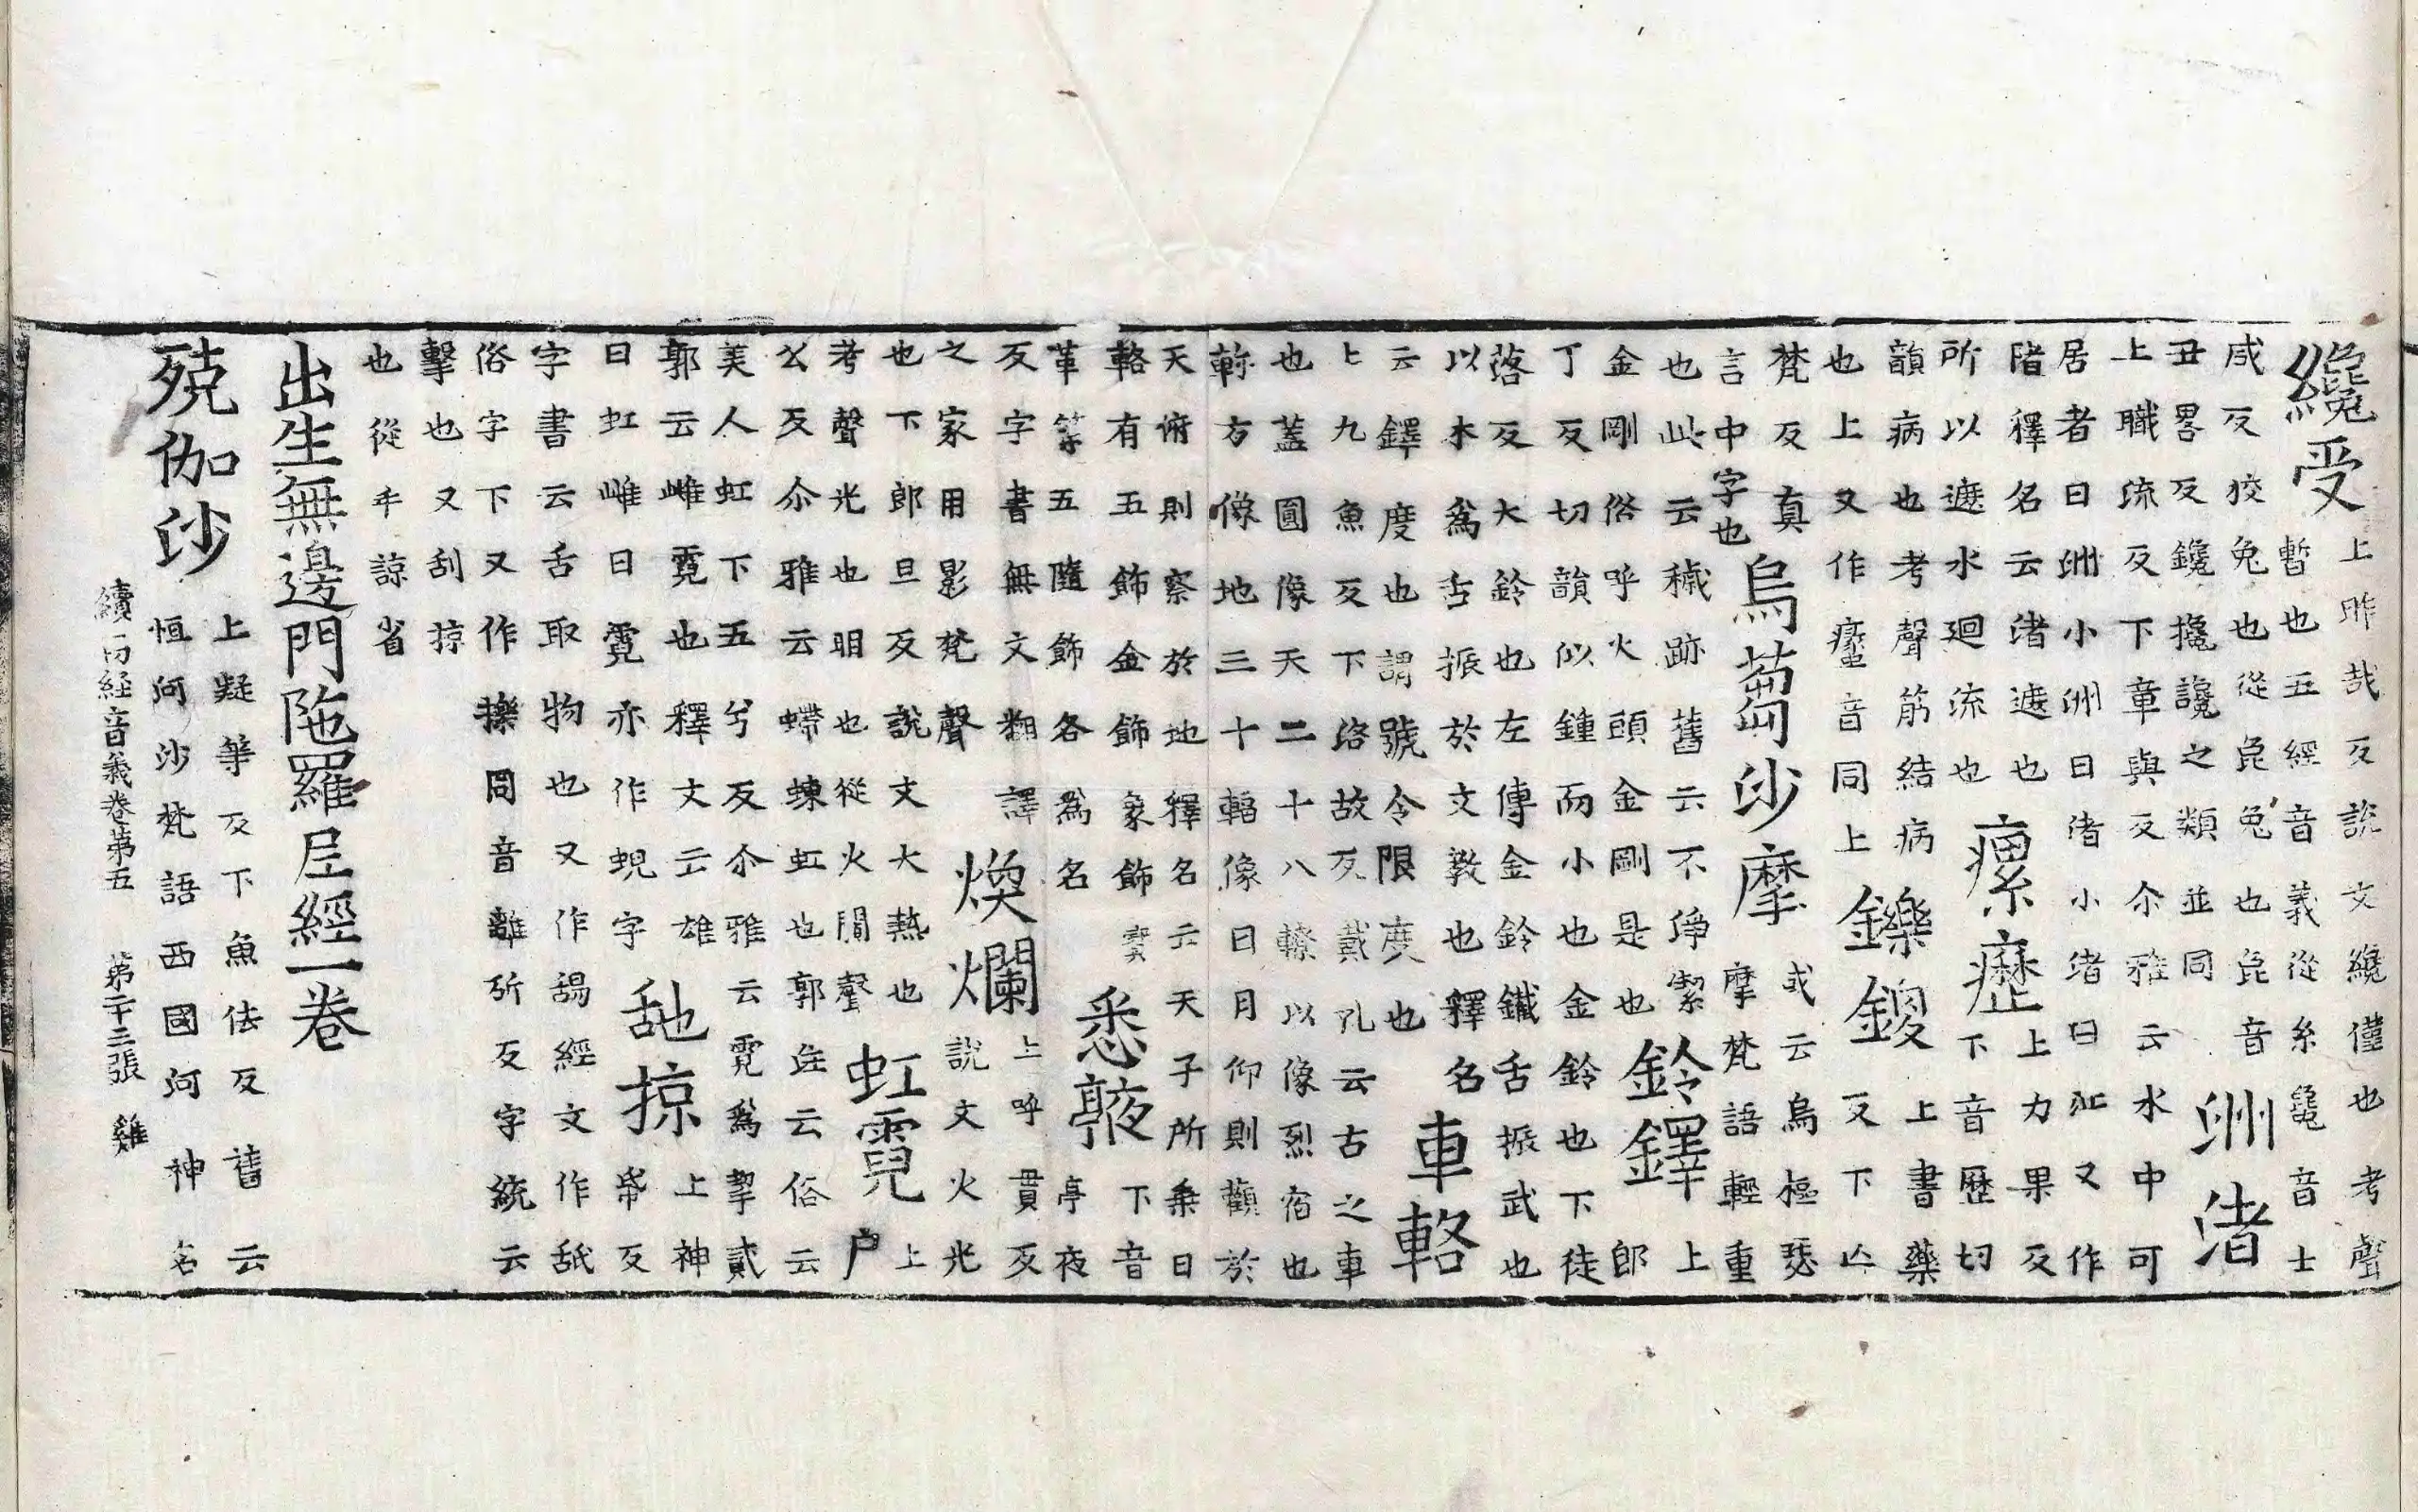 纔受 上昨哉反說文纔僅也考聲
暫也五經音義從糸毚音士
咸反狡兔也從㲋兔也㲋音
丑畧反鑱攙讒之類並同 洲渚
上職流反下章與反尒雅云水中可
居者曰洲小洲曰渚小渚曰沚又作
陼釋名云渚遮也
所以遮水廻流也 瘰癧 上力果反
下音歷切
韻病也考聲筋結病
也上又作㿔音同上 鑠鑁 上書藥
反下亡
梵反真
言中字也 烏蒭沙摩 或云烏樞瑟
摩梵語輕重
也此云穢跡舊云不淨潔
金剛俗呼火頭金剛是也 鈴鐸 上
郎
丁反切韻似鍾而小也金鈴也下徒
落反大鈴也左傳金鈴鐵舌振武也
以木爲舌振於文教也釋名
云鐸度也謂號令限度也 車輅
上九魚反下洛故反戴孔云古之車
也蓋圓像天二十八轑以像烈宿也
軫方像地三十輻像日月仰則觀於
天俯則察於地釋名云天子所乗曰
輅有五飾金飾象飾
革等五隨飾各爲名 悉 下音
亭夜
反字書無文翻譯
之家用影梵聲 煥爛 上呼貫反
說文火光
也下郎旦反說文大熱也
考聲光也明也從火閒聲 虹霓 上
戶
公反尒雅云螮蝀虹也郭註云俗云
美人虹下五兮反尒雅云霓爲挈貳
郭云雌霓也釋文云雄
曰虹雌曰霓亦作蜺字 舓掠 上神
帋反
字書云舌取物也又作䑛經文作舐
俗字下又作擽同音離斫反字統云
擊也又刮掠
也從手諒省
出生無邊門陁羅尼經一卷
殑伽沙 上疑等反下魚佉反舊云
恒河沙梵語西國河神名
續一切経音義卷第五 第二十三張 雞